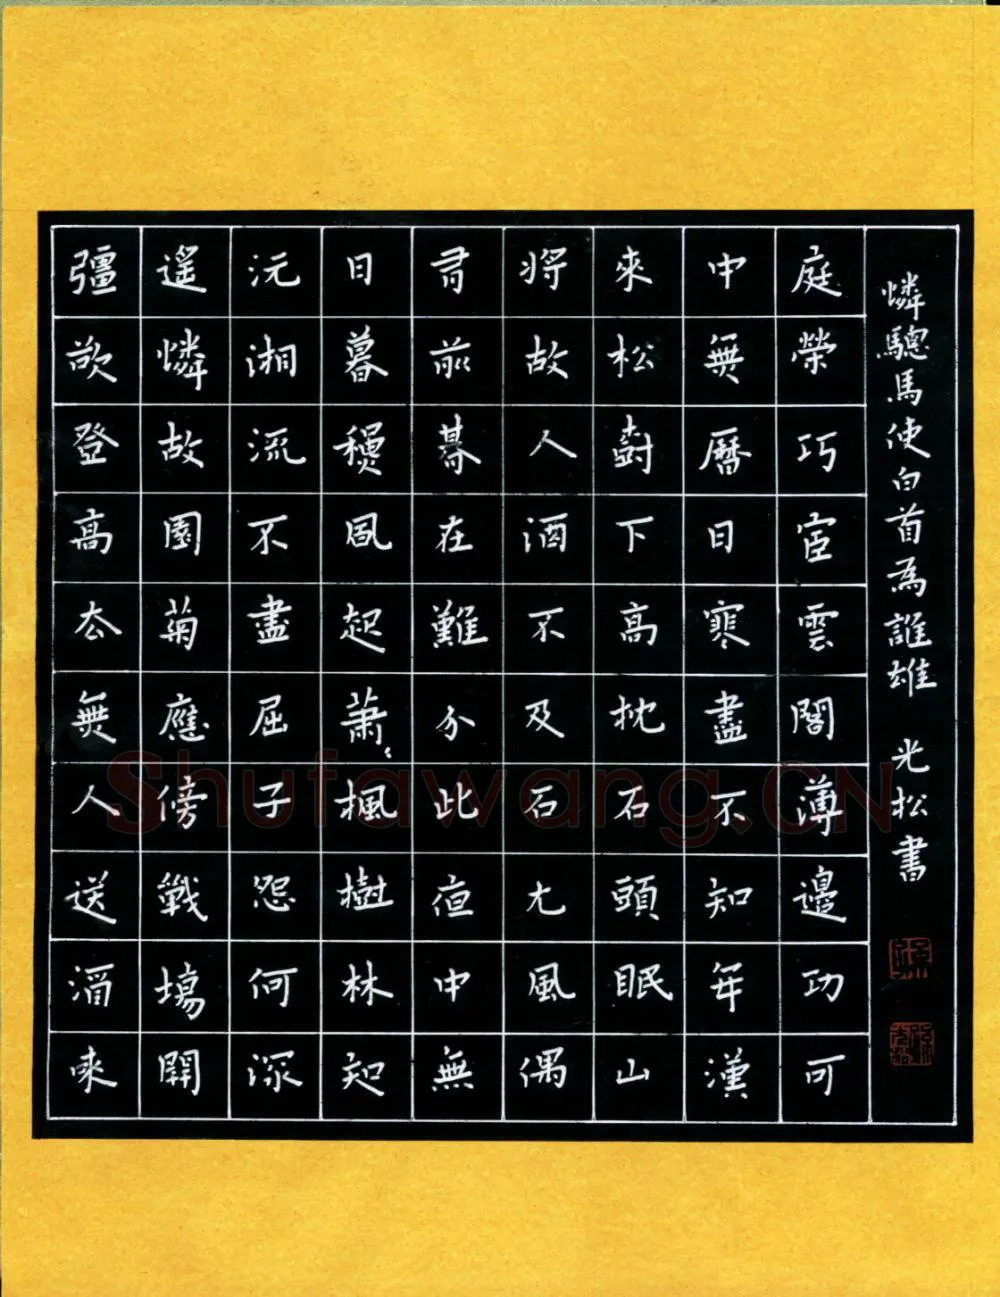 彊欲登高去無人送酒來
遙憐故園菊應傍戰場開
沅湘流不盡屈子怨何深
日暮穐風起蕭〻楓樹林知
君前朞在難分此夜中無
將故人酒不及石尤風偶
來松樹下高枕石頭眠山
中無曆日寒盡不知年漢
庭榮巧宦雲閣薄邊功可
憐驄馬使白首為誰雄 光松書
Shufawang.CN